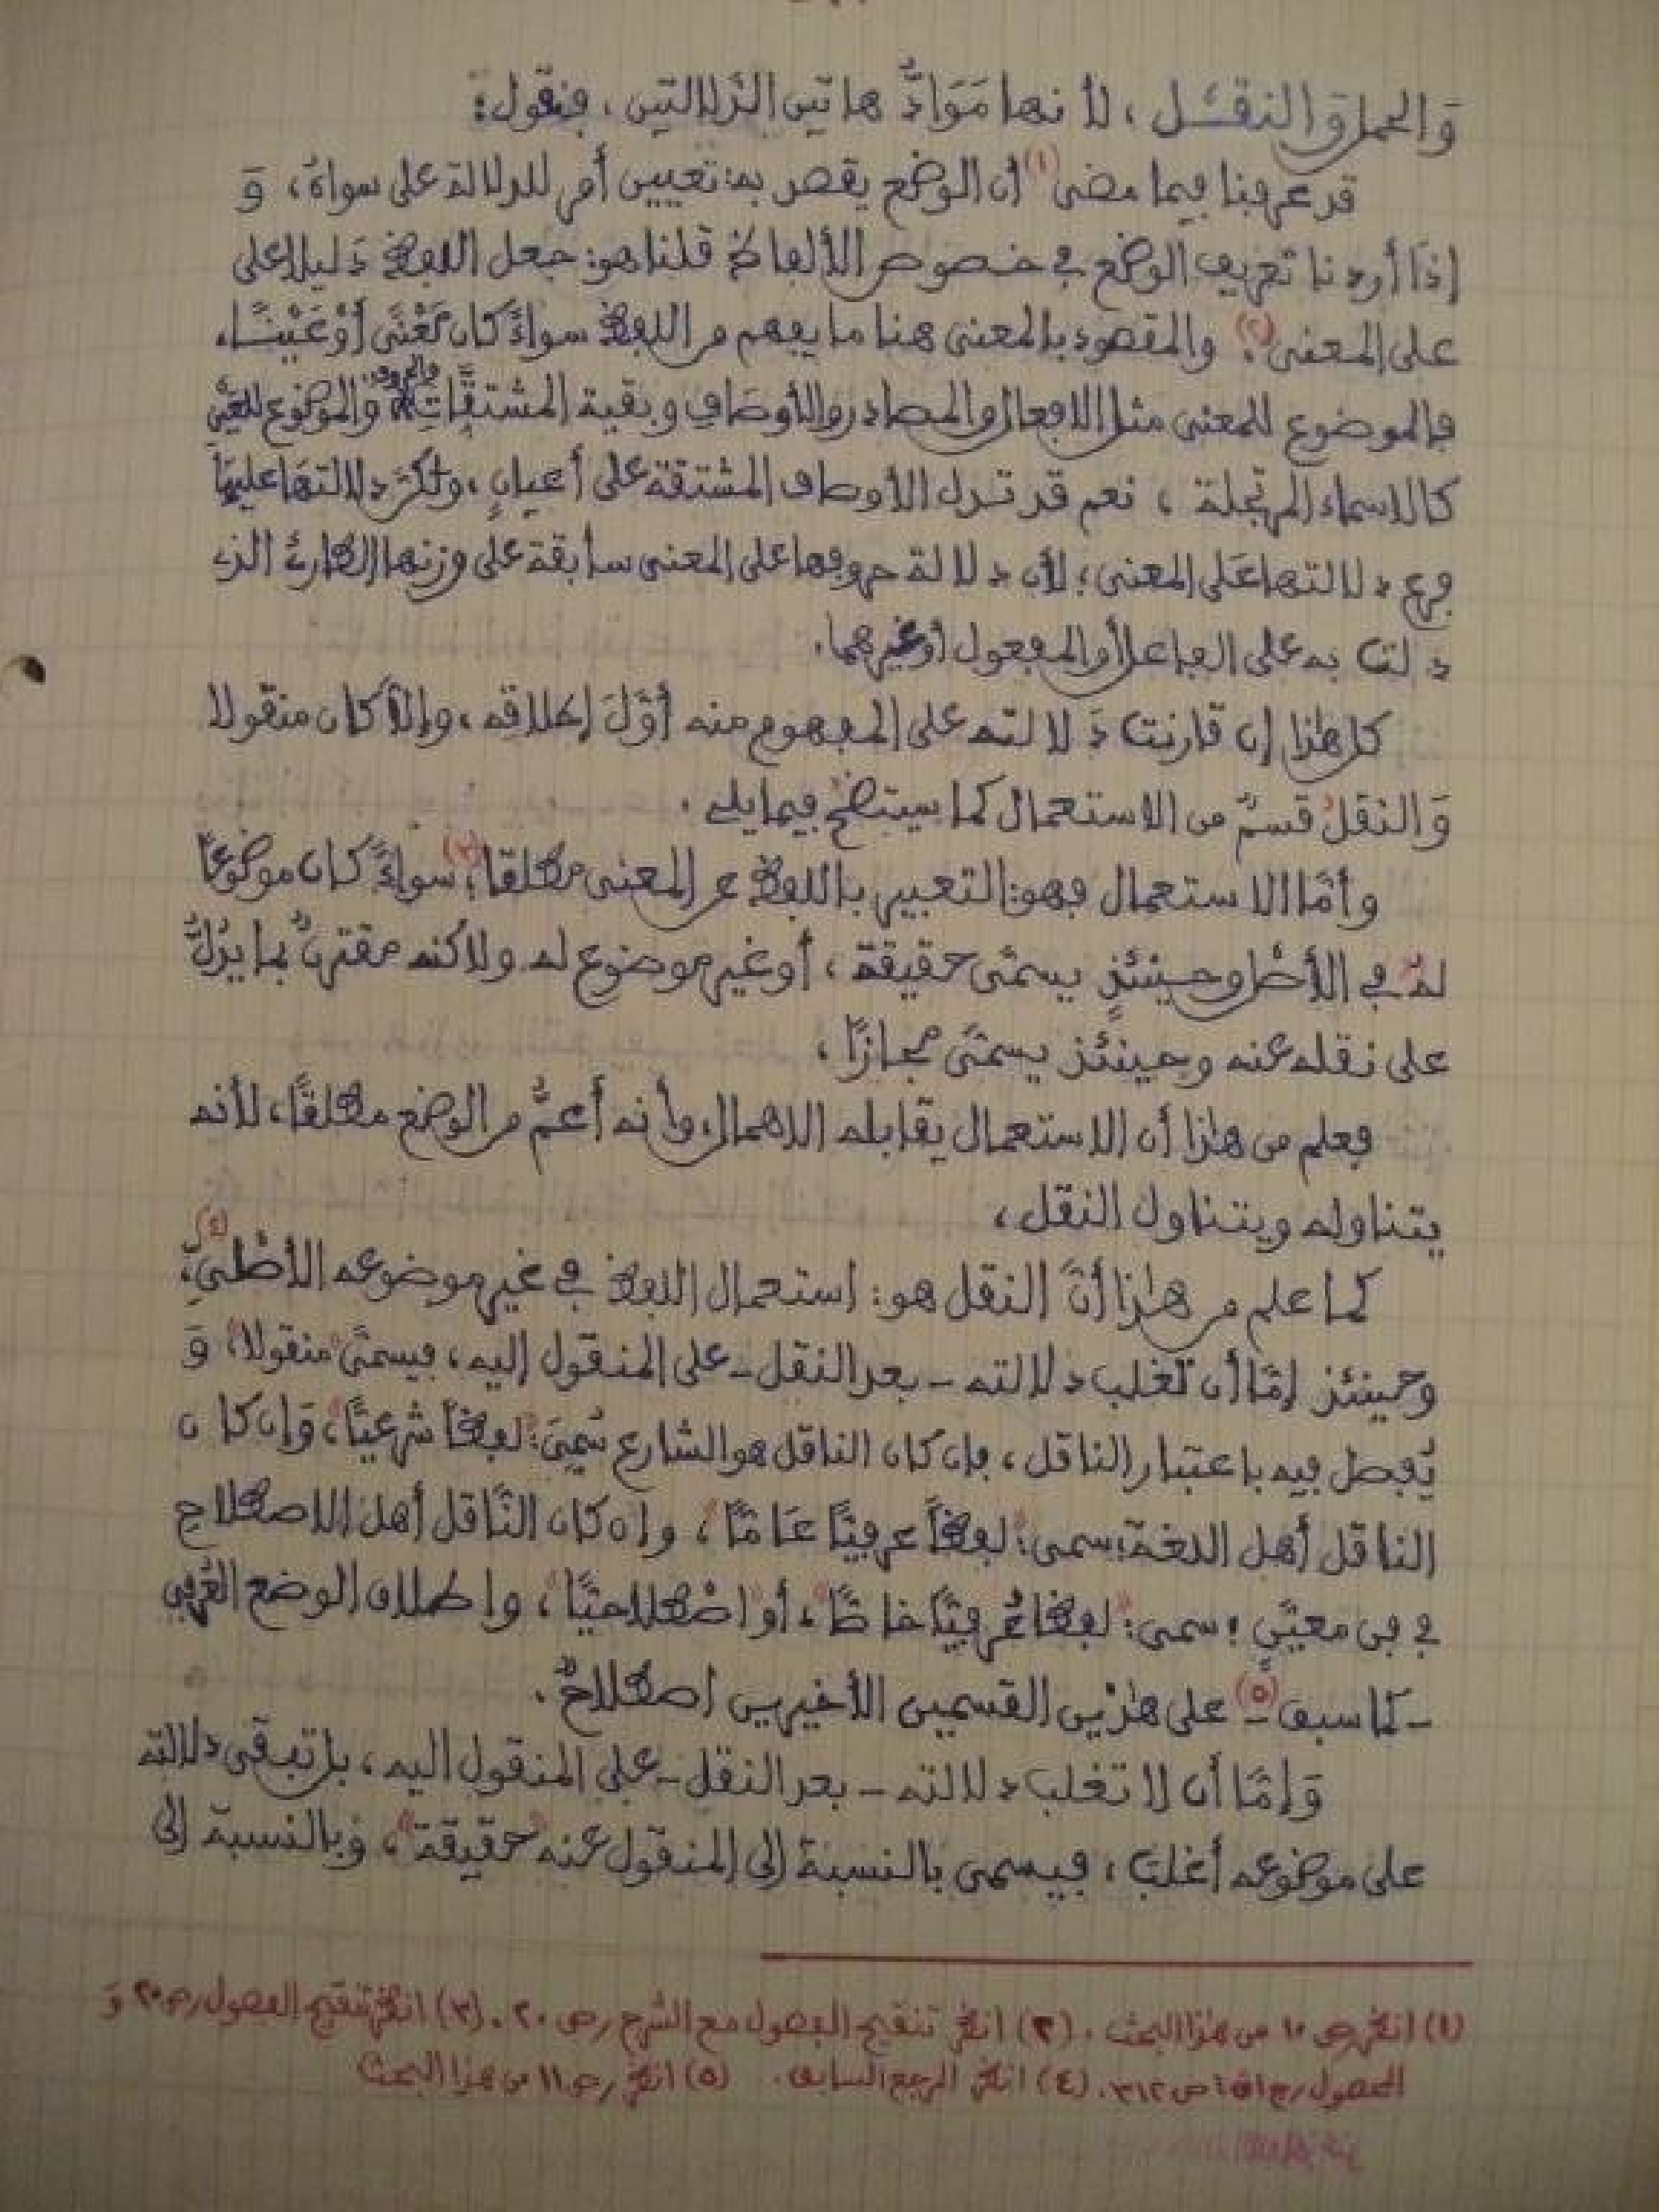 وَالحمل وَالنقل، لأنها مَوَادُّ هاتين الدَّلالتين. فنقول:
قد عرفنا فيما مضى (١) أن الوضع يقصد به: تعيين أمر للدلالة على سواهُ، وَ
إذَا أردنا تعريف الوضع في خصوص الألفاظ قلنا هو: جعل اللفظ دَليلا على
على المعنى (٢). والمقصود بالمعنى هنا ما يفهم من اللفظ سواءً كان مَعْنًى أوْ عَيْنًا،
فالموضوع للمعنى مثل الافعال والمصادر والأوصافِ وبقية المشتقَّاتِ والحروف، والموضوع للعَيْنِ
كالاسماء المرتجلة، نعم قد تدل الأوصاف المشتقة على أعيانٍ، ولكنَّ دلالتهَا عليهَا
فرع دلالتها عَلى المعنى؛ لأن دلالة حروفها على المعنى سابقة على وزنها الطارئ الذي
دلت به على الفاعل أو المفعول أوغيرهما.
كل هٰذا إن قارنت دَلالته على المفهوم منه أوَّلَ إطلاقه، وإلاَّ كان منقولا
وَالنقلُ قسمٌ من الاستعمال كما سيتضح فيما يلي.
وأمَّا الاستعمال فهو: التعبير باللفظ عن المعنى مطلقا (٣)؛ سواءً كان موضوعًا
لهُ في الأصْل وحينئذٍ يسمَّى حقيقة، أو غير موضوع له ولاكنه مقترنٌ بما يدُلُّ
على نقله عنه وحينئذ يسمَّى مجازًا،
فعلم من هٰذا أن الاستعمال يقابله الاهمال، وأنه أعمُّ من الوضع مطلقًا، لأنه
يتناوله ويتناول النقل،
كما علم من هٰذا أنَّ النقل هو: استعمال اللفظ في غير موضوعه الأصْليِّ (٤)،
وحينئذ إمَّا أن تغلب دلالته - بعد النقل - على المنقول إليه، فيسمَّى "منقولا"، وَ
يُفصل فيه باعتبار الناقل، فإن كان الناقل هو الشارع سُمِيَ: "لفظاً شرعيًّا"، وَإن كان
الناقل أهل اللغة؛ سمى: "لفظاً عرفيًّا عَامًّا"، وإن كان النَّاقل أهل الاصطلاح
في فن معيَّنٍ؛ سمى: "لفظا عُرفيًّا خاصًّا"، أو "اصْطلاحيًّا"، وإطلاق الوضع العُرفي
- كما سبق (٥) - على هٰذيْن القسمين الأخيرين اصطلاحٌ.
وَإمَّا أن لا تغلب دلالته - بعد النقل - على المنقول اليه، بل تبقى دلالته
على موضوعه أغلبَ، فيسمى بالنسبة إلى المنقول عنه "حقيقة"، وَبالنسبة إلى
(١) انظر ص ١٠ من هٰذا البحث. (٢) انظر تنقيح الفصول مع الشرح ص ٢٠. (٣) انظر تنقيح الفصول ص ٢٠ وَ
المحصول ج ١ ق ١ ص ٣١٢. (٤) انظر المرجع السابق. (٥) انظر ص ١١ من هذا البحث